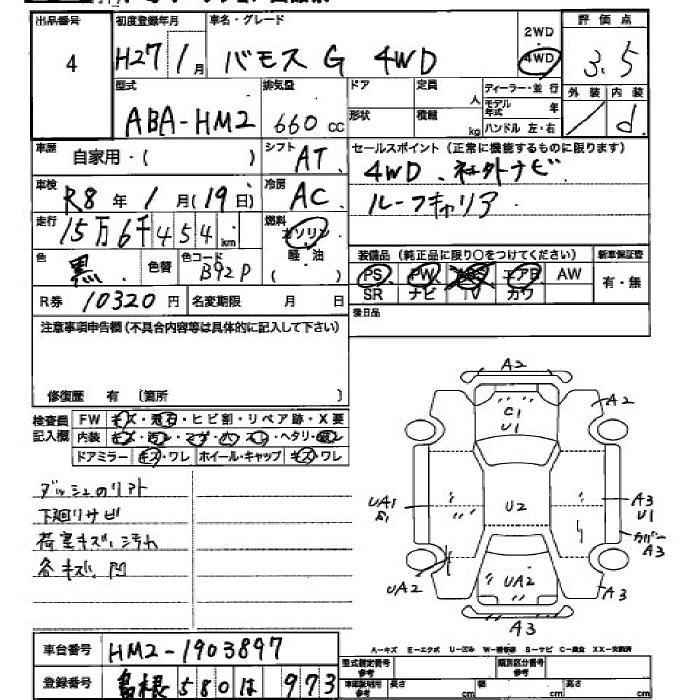 出品番号 初度登録年月 車名・グレード 2WD 評価点
4 H27 / 1月 バモス G 4WD 4WD 3.5
型式 排気量 ドア 定員 人 ディーラー・並行 外装 内装
ABA-HM2 660 cc 形状 積載 kg モデル年式 年 / d
ハンドル 左・右
車歴 自家用・( ) シフト AT セールスポイント (正常に機能するものに限ります)
車検 R8年 1月(19日) 冷房 AC 4WD、社外ナビ
走行 15万6千454km 燃料 ガソリン ルーフキャリア
色 黒 色替 色コード B92P 軽・油 ( 装備品 (純正品に限り○をつけてください) 新車保証登
PS PW ABS エアB AW 有・無
R券 10320円 名変期限 月 日 SR ナビ TV カワ
注意事項申告欄(不具合内容等は具体的に記入して下さい) 後日品
修復歴 有 〔箇所 〕
検査員 FW キズ・飛石・ヒビ割・リペア跡・X要
記入欄 内装 ・ヘタリ・
ドアミラー キズ・ワレ ホイール・キャップ キズ・ワレ
A2
A2
C1
U1
ダッシュのリアト
下廻りサビ
荷室キズ、汚れ
各キズ、凹
UA1
S1
U2
A3
U1
カバー
A3
UA2
UA2
A3
A3
車台番号 HM2-1903897
A-キズ E-エクボ U-凹み W-補修跡 S-サビ C-腐食 XX-交換済
登録番号 島根 580 は 973
型式指定番号 参考 類別区分番号 参考
車庫証明用 参考 長さ cm 幅 cm 高さ cm